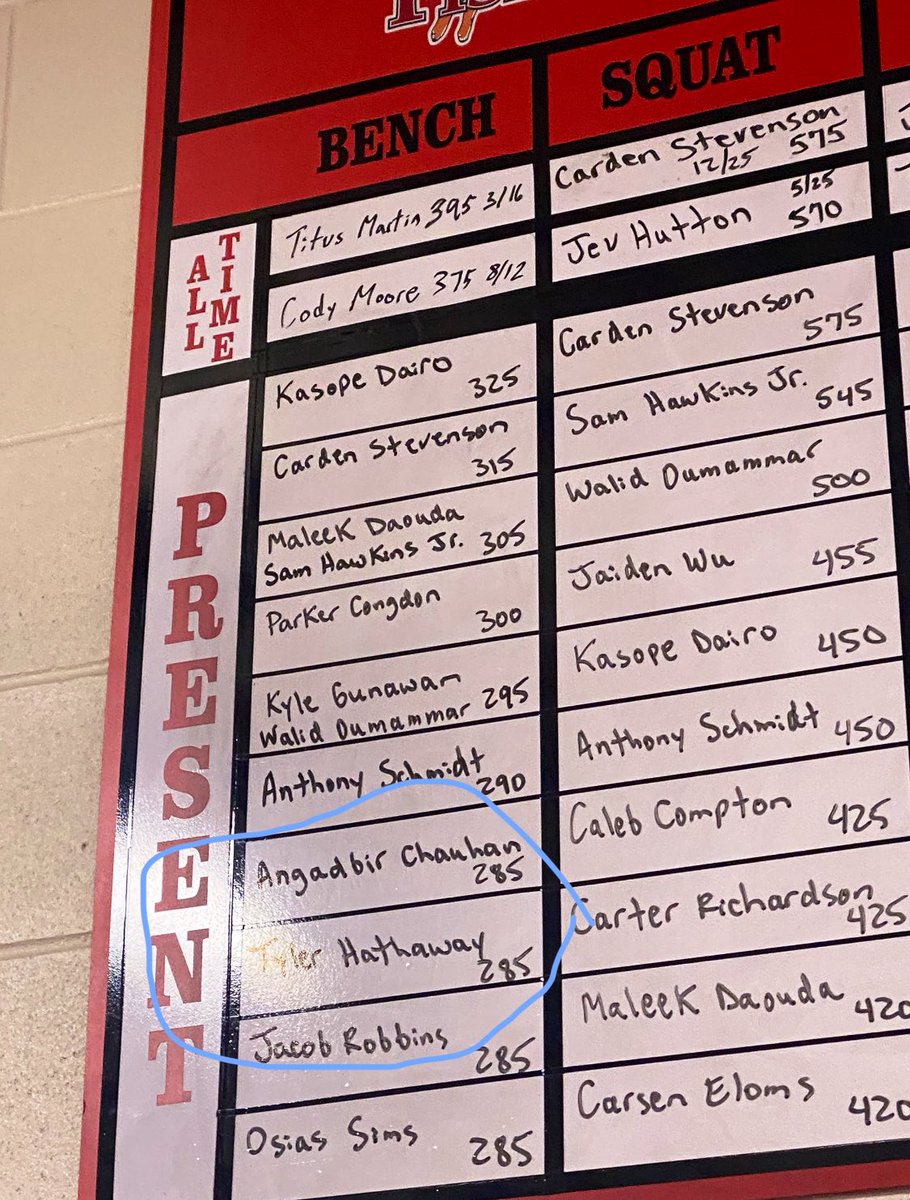 BENCH
SQUAT
ALL TIME
Titus Martin 395 3/16
Cody Moore 375 8/12
Carden Stevenson
12/25 575
Jev Hutton 5/25
570
PRESENT
Kasope Dairo
325
Carden Stevenson
315
Maleek Daouda
Sam Hawkins Jr. 305
Parker Congdon
300
Kyle Gunawan
Walid Oumammar 295
Anthony Schmidt
290
Angadbir Chauhan
285
Tyler Hathaway
285
Jacob Robbins
285
Osias Sims
285
Carden Stevenson
575
Sam Hawkins Jr.
545
Walid Oumammar
500
Jaiden Wu 455
Kasope Dairo 450
Anthony Schmidt 450
Caleb Compton
425
Carter Richardson
425
Maleek Daouda
420
Carsen Eloms
420